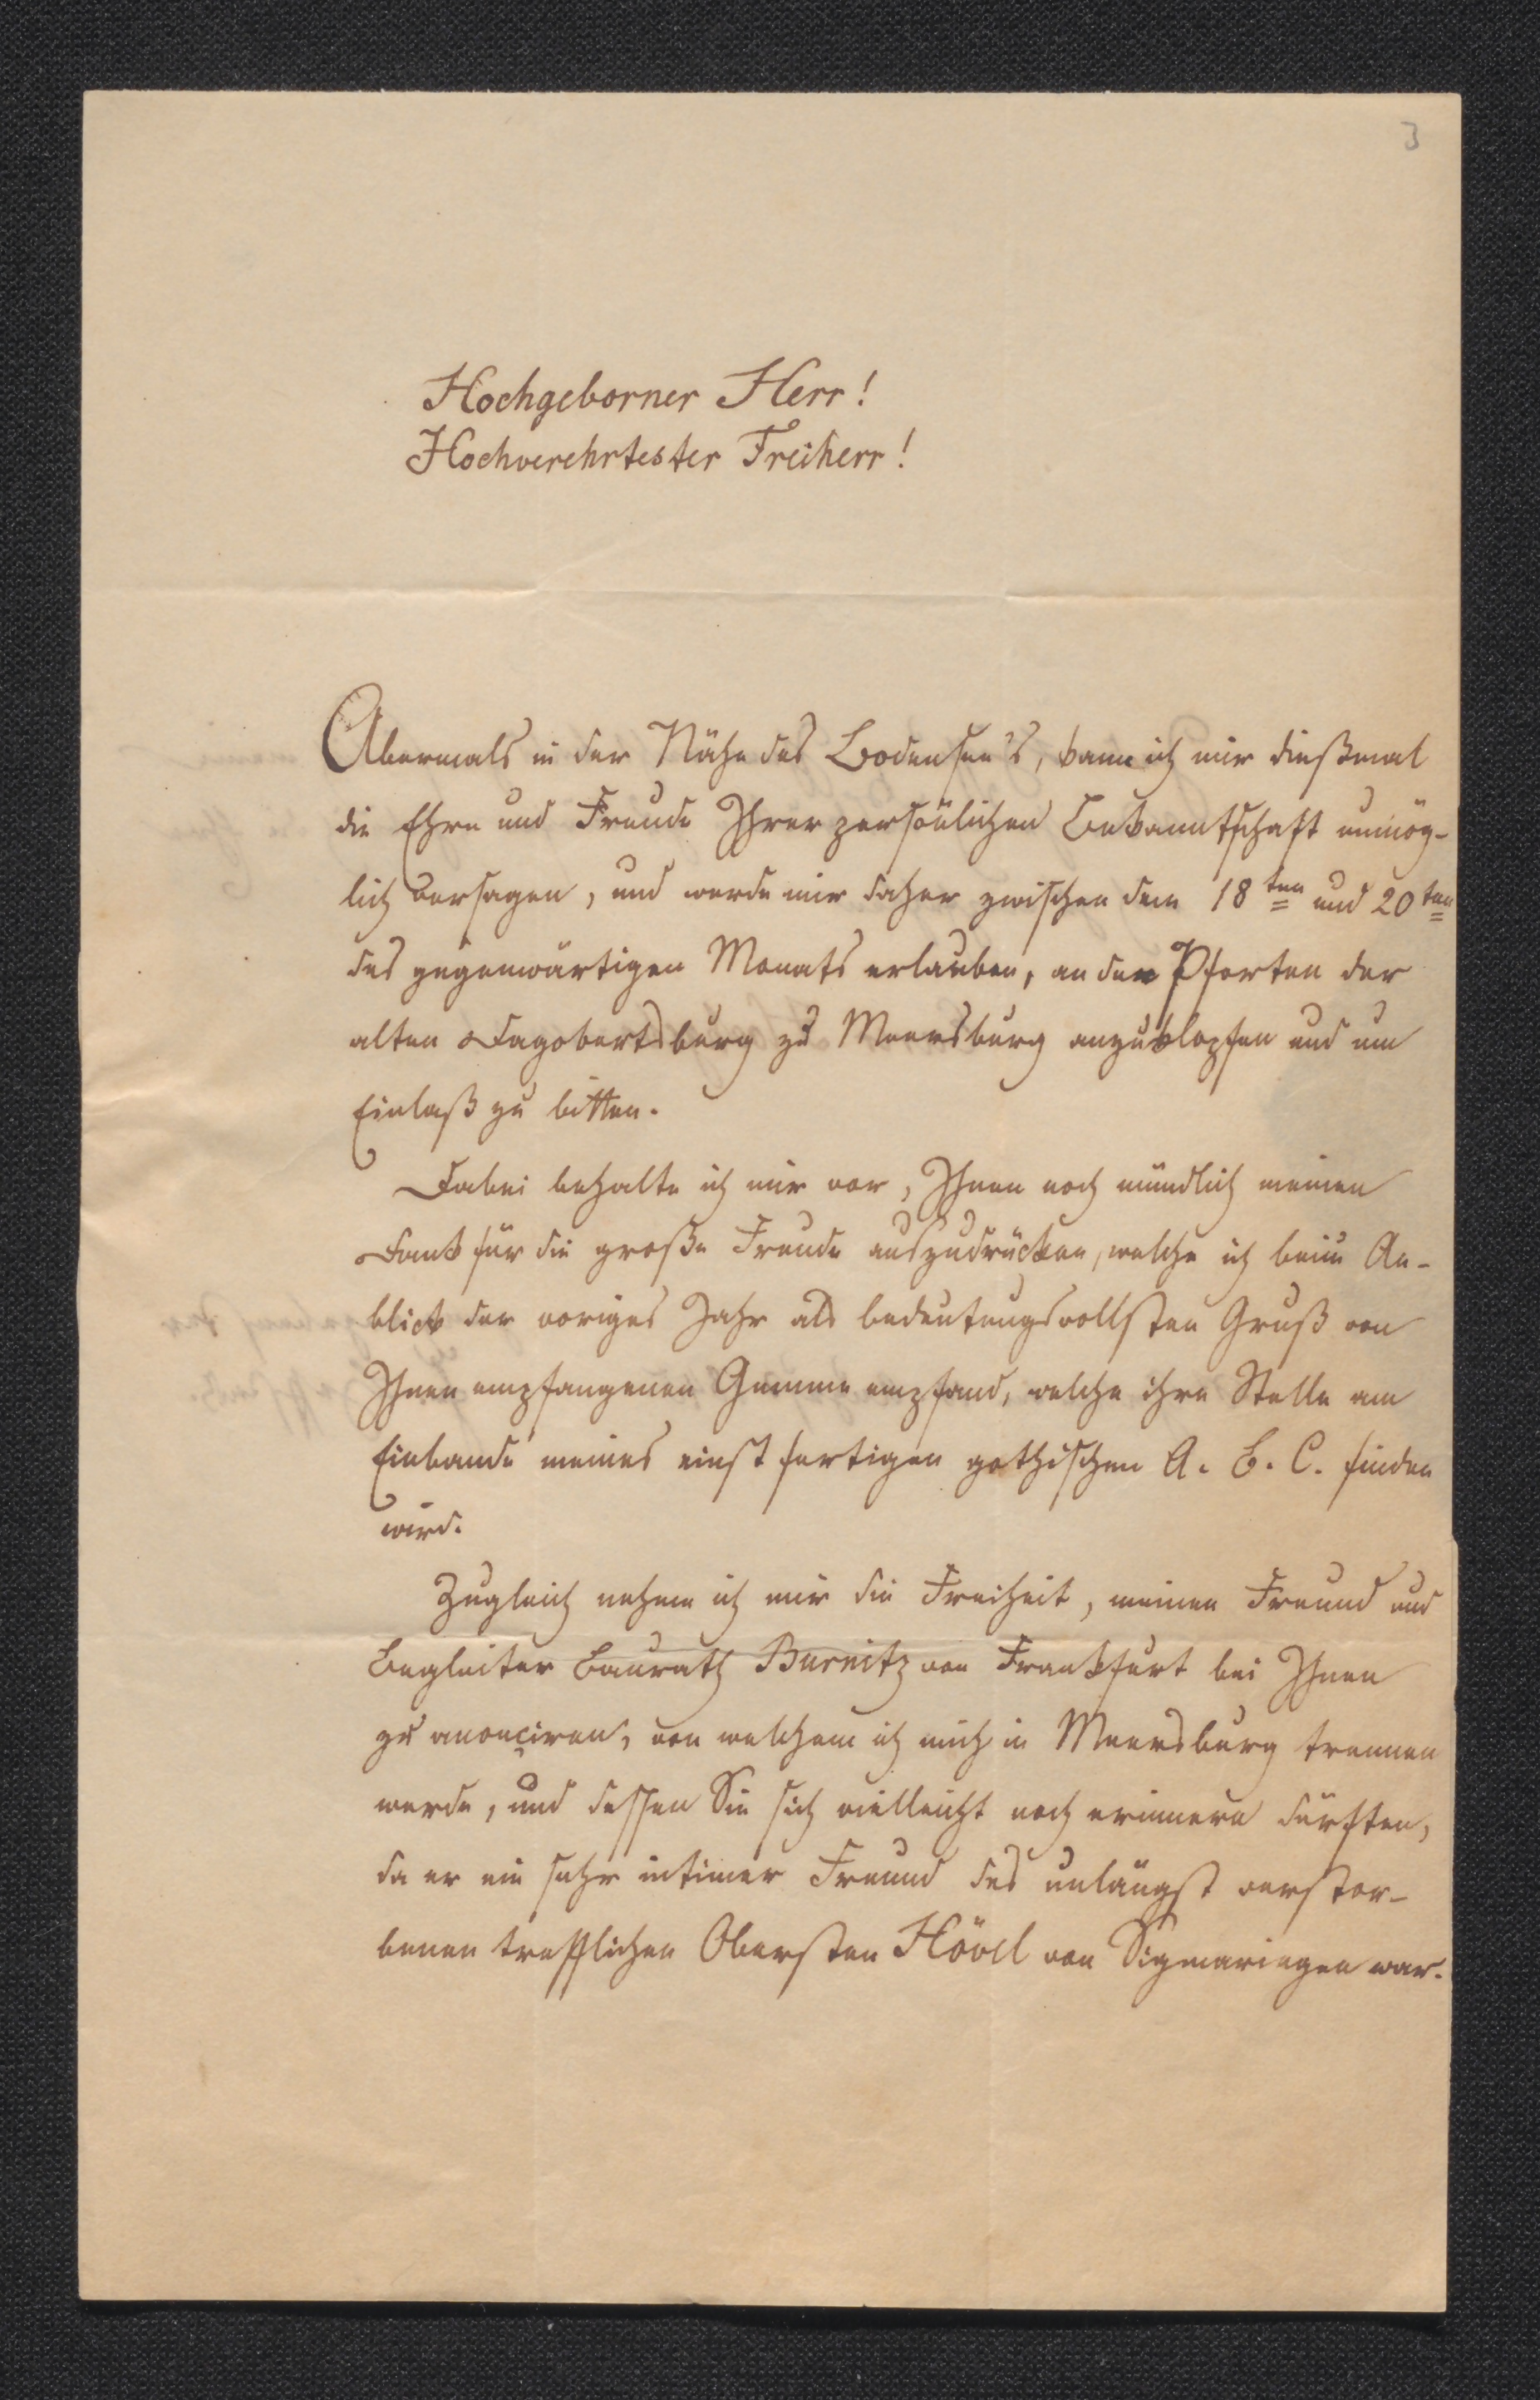 3
Hochgeborner Herr!
Hochverehrtester Freiherr!
Abermals in der Nähe des Bodensee's, kann ich mir dießmal
die Ehre und Freude Ihrer persönlichen Bekanntschaft unmög-
lich versagen, und werde mir daher zwischen dem 18ten und 20ten
des gegenwärtigen Monats erlauben, an den Pforten der
alten Dagobertsburg zu Meersburg anzuklopfen und um
Einlaß zu bitten.
Dabei behalte ich mir vor, Ihnen noch mündlich meinen
Dank für die große Freude auszudrücken, welche ich beim An-
blick der voriges Jahr als bedeutungsvollsten Gruß von
Ihnen empfangenen Gemme empfand, welche ihre Stelle am
Einbande meines einst fertigen gothischen A. B. C. finden
wird.
Zugleich nehme ich mir die Freiheit, meinen Freund und
Begleiter Baurath Burnitz von Frankfurt bei Ihnen
zu anonçiren, von welchem ich mich in Meersburg trennen
werde, und dessen Sie sich vielleicht noch erinnern dürften,
da er ein sehr intimer Freund des unlängst verstor-
benen trefflichen Obersten Hövel von Sigmaringen war.